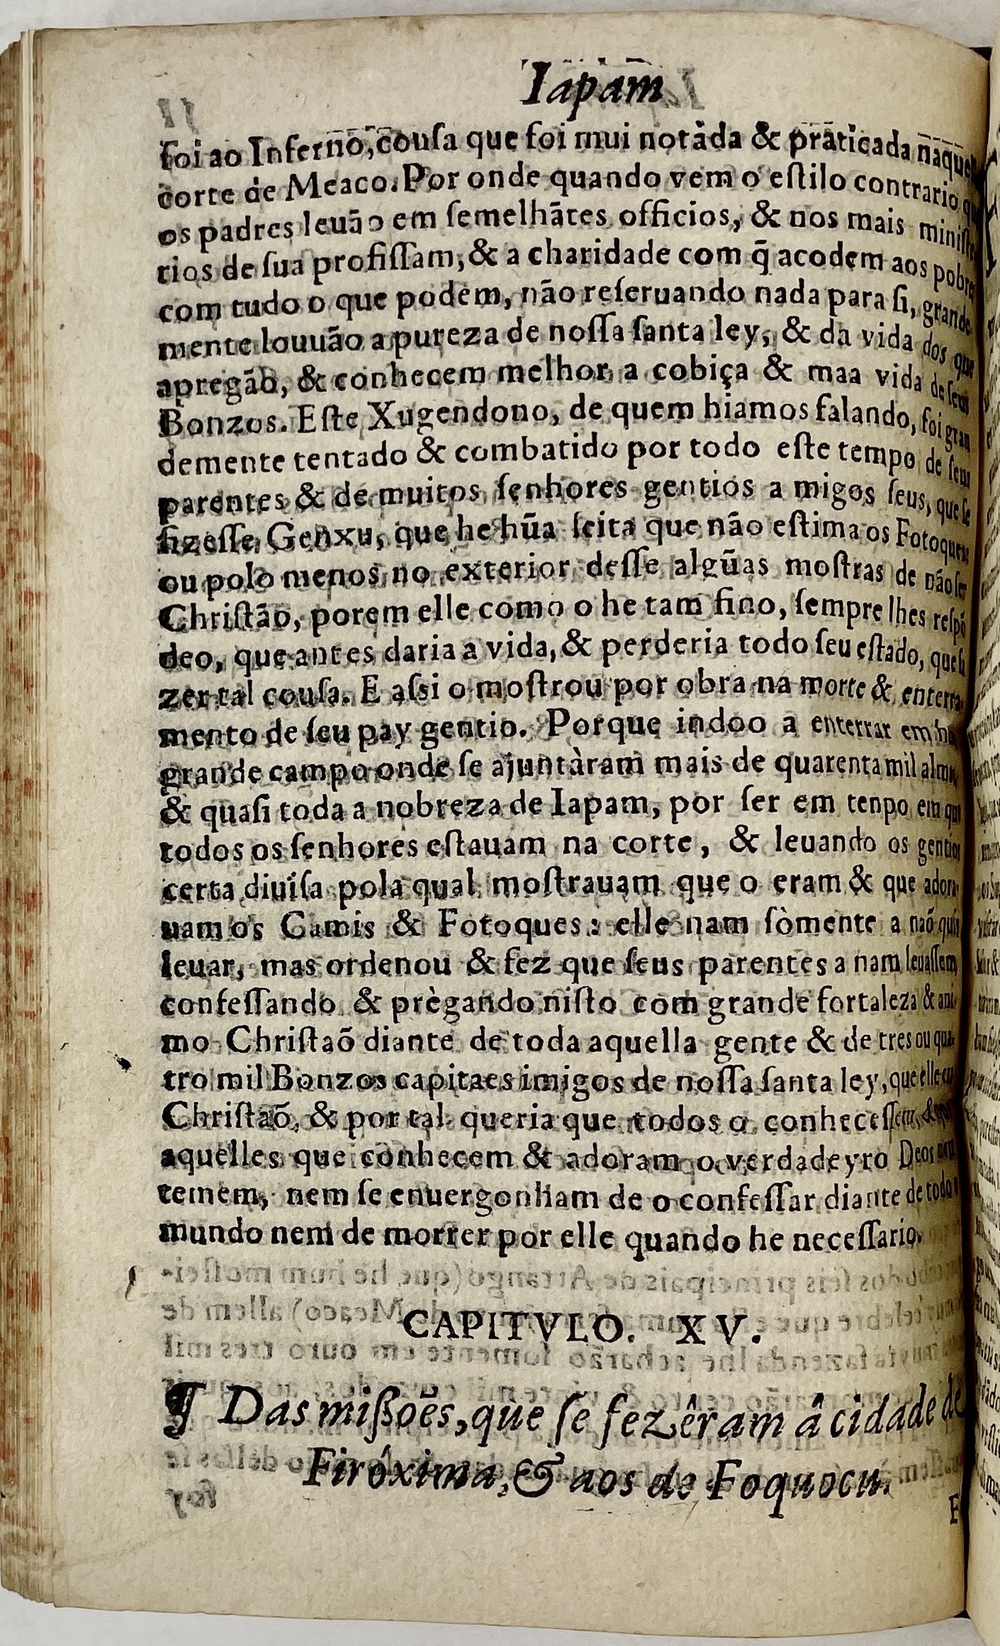 Iapam
foi ao Inferno, cousa que foi mui notàda & pràticada naquel
corte de Meaco. Por onde quando vem o estilo contrario q
os padres leuão em semelhãtes officios, & nos mais minist
rios de sua profissam, & a charidade com q̃ acodem aos pobre
com tudo o que podem, não reseruando nada para si, grande
mente louuão a pureza de nossa santa ley, & da vida dos que
apregão, & conhecem melhor a cobiça & maa vida de seus
Bonzos. Este Xugendono, de quem hiamos falando, foi gran
demente tentado & combatido por todo este tempo de seus
parentes & de muitos senhores gentios a migos seus, que se
fizesse Genxu, que he hũa seita que não estima os Fotoques
ou polo menos no exterior desse algũas mostras de não ser
Christão, porem elle como o he tam fino, sempre lhes respõ
deo, que antes daria a vida, & perderia todo seu estado, que fi
zer tal cousa. E assi o mostrou por obra na morte & enterra
mento de seu pay gentio. Porque indoo a enterrar em h
grande campo onde se ajuntàram mais de quarenta mil almas
& quasi toda a nobreza de Iapam, por ser em tenpo em que
todos os senhores estauam na corte, & leuando os gentios
certa diuisa pola qual mostrauam que o eram & que adora
uam os Camis & Fotoques: elle nam sòmente a naõ quis
leuar, mas ordenou & fez que seus parentes a nam leuassem,
confessando & prègando nisto com grande fortaleza & ani-
mo Christaõ diante de toda aquella gente & de tres ou qua-
tro mil Bonzos capitaes imigos de nossa santa ley, que elle
Christaõ, & por tal queria que todos o conhecessem, &
aquelles que conhecem & adoram o verdadeyro Deos
temem, nem se enuergonham de o confessar diante de todo
mundo nem de morrer por elle quando he necessario.
CAPITVLO. XV.
¶ Das missões, que se fezêram â cidade de
Firóxima, & aos de Foquocu.